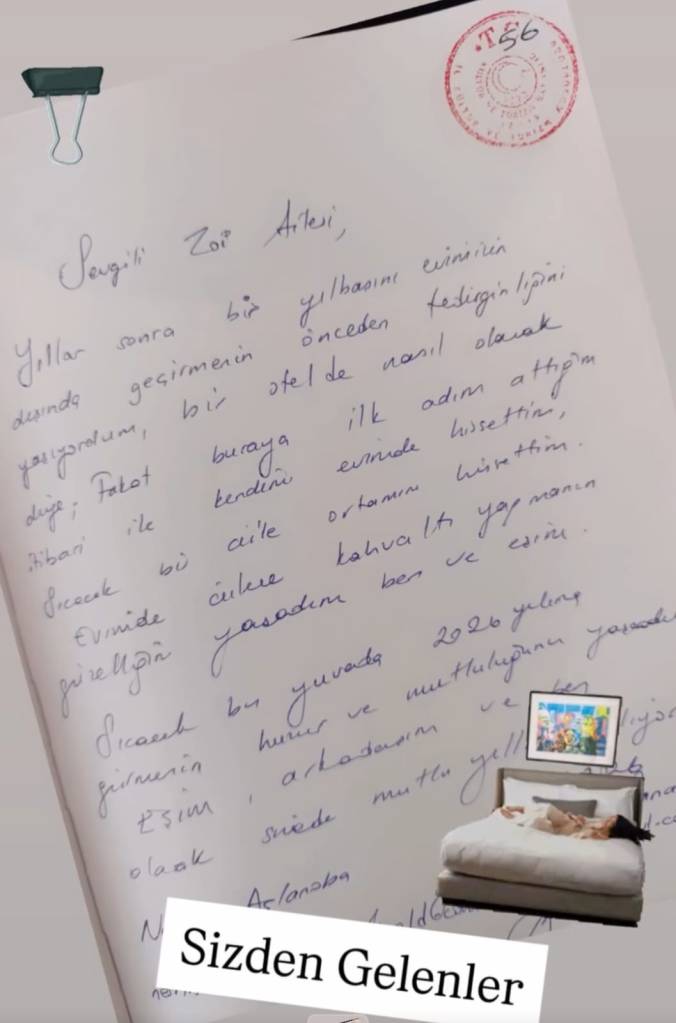 T.C.
56
Sevgili Zoi Ailesi,
Yıllar sonra bir yılbaşını evimizin
dışında geçirmenin önceden tedirginliğini
yaşıyordum, bir otelde nasıl olacak
diye; Fakat buraya ilk adım attığım
itibari ile kendimi evimde hissettim,
Sıcacak bir aile ortamını hissettim.
Evimde ailece kahvaltı yapmanın
güzelliğini yaşadım ben ve eşim.
Sıcacık bir yuvada 2026 yılına
girmenin huzur ve mutluluğunu
Eşim, arkadaşım ve ben
olarak sizede mutlu
Aslanoba
Sizden Gelenler